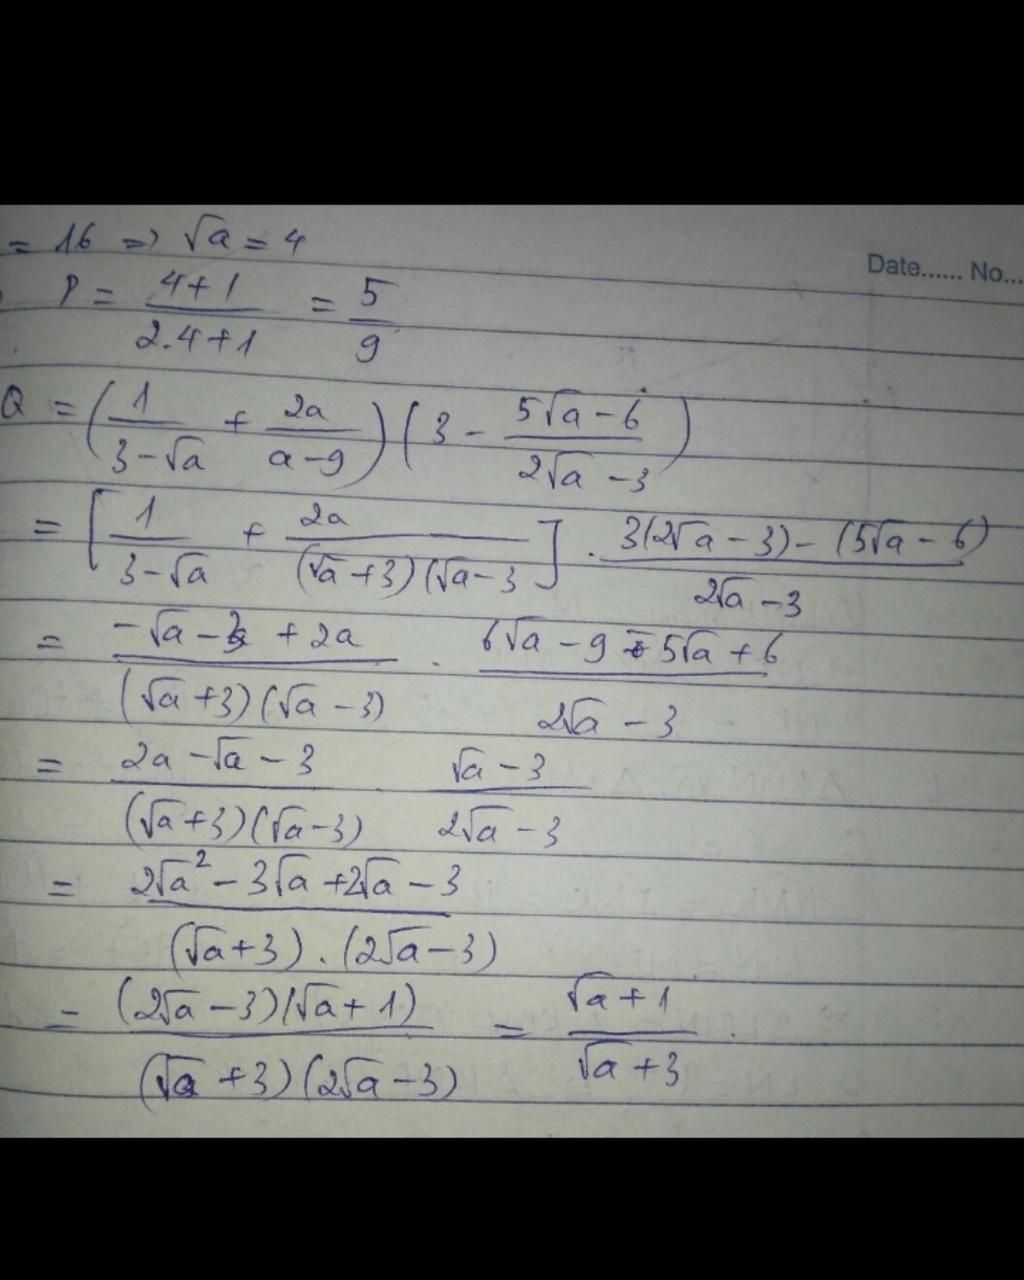 = 16 => √a = 4
Date...... No...
P = (4+1)/(2.4+1) = 5/9
Q = (1/(3-√a) + 2a/(a-9)) (3 - (5√a-6)/(2√a-3))
= [1/(3-√a) + 2a/((√a+3)(√a-3] . (3(2√a-3)-(5√a-6))/(2√a-3)
= (-√a-3+2a)/((√a+3)(√a-3)) . (6√a-9-5√a+6)/(2√a-3)
= (2a-√a-3)/((√a+3)(√a-3)) . (√a-3)/(2√a-3)
= (2√a²-3√a+2√a-3)/((√a+3).(2√a-3))
= ((2√a-3)(√a+1))/((√a+3)(2√a-3)) = (√a+1)/(√a+3)